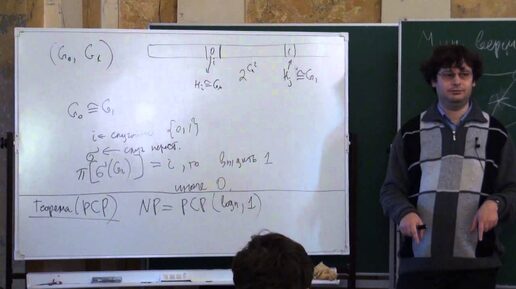 (G₀, G₁)
0 1
i j
Hᵢ≅G₀ 2^{Cₙ²} Hⱼ≅G₁
G₀ ≅ G₁
i ← случайно {0,1}
σ ← случ перест.
π[σ(Gᵢ)] = i, то выдать 1
иначе 0.
Теорема (PCP) NP = PCP(log n, 1)